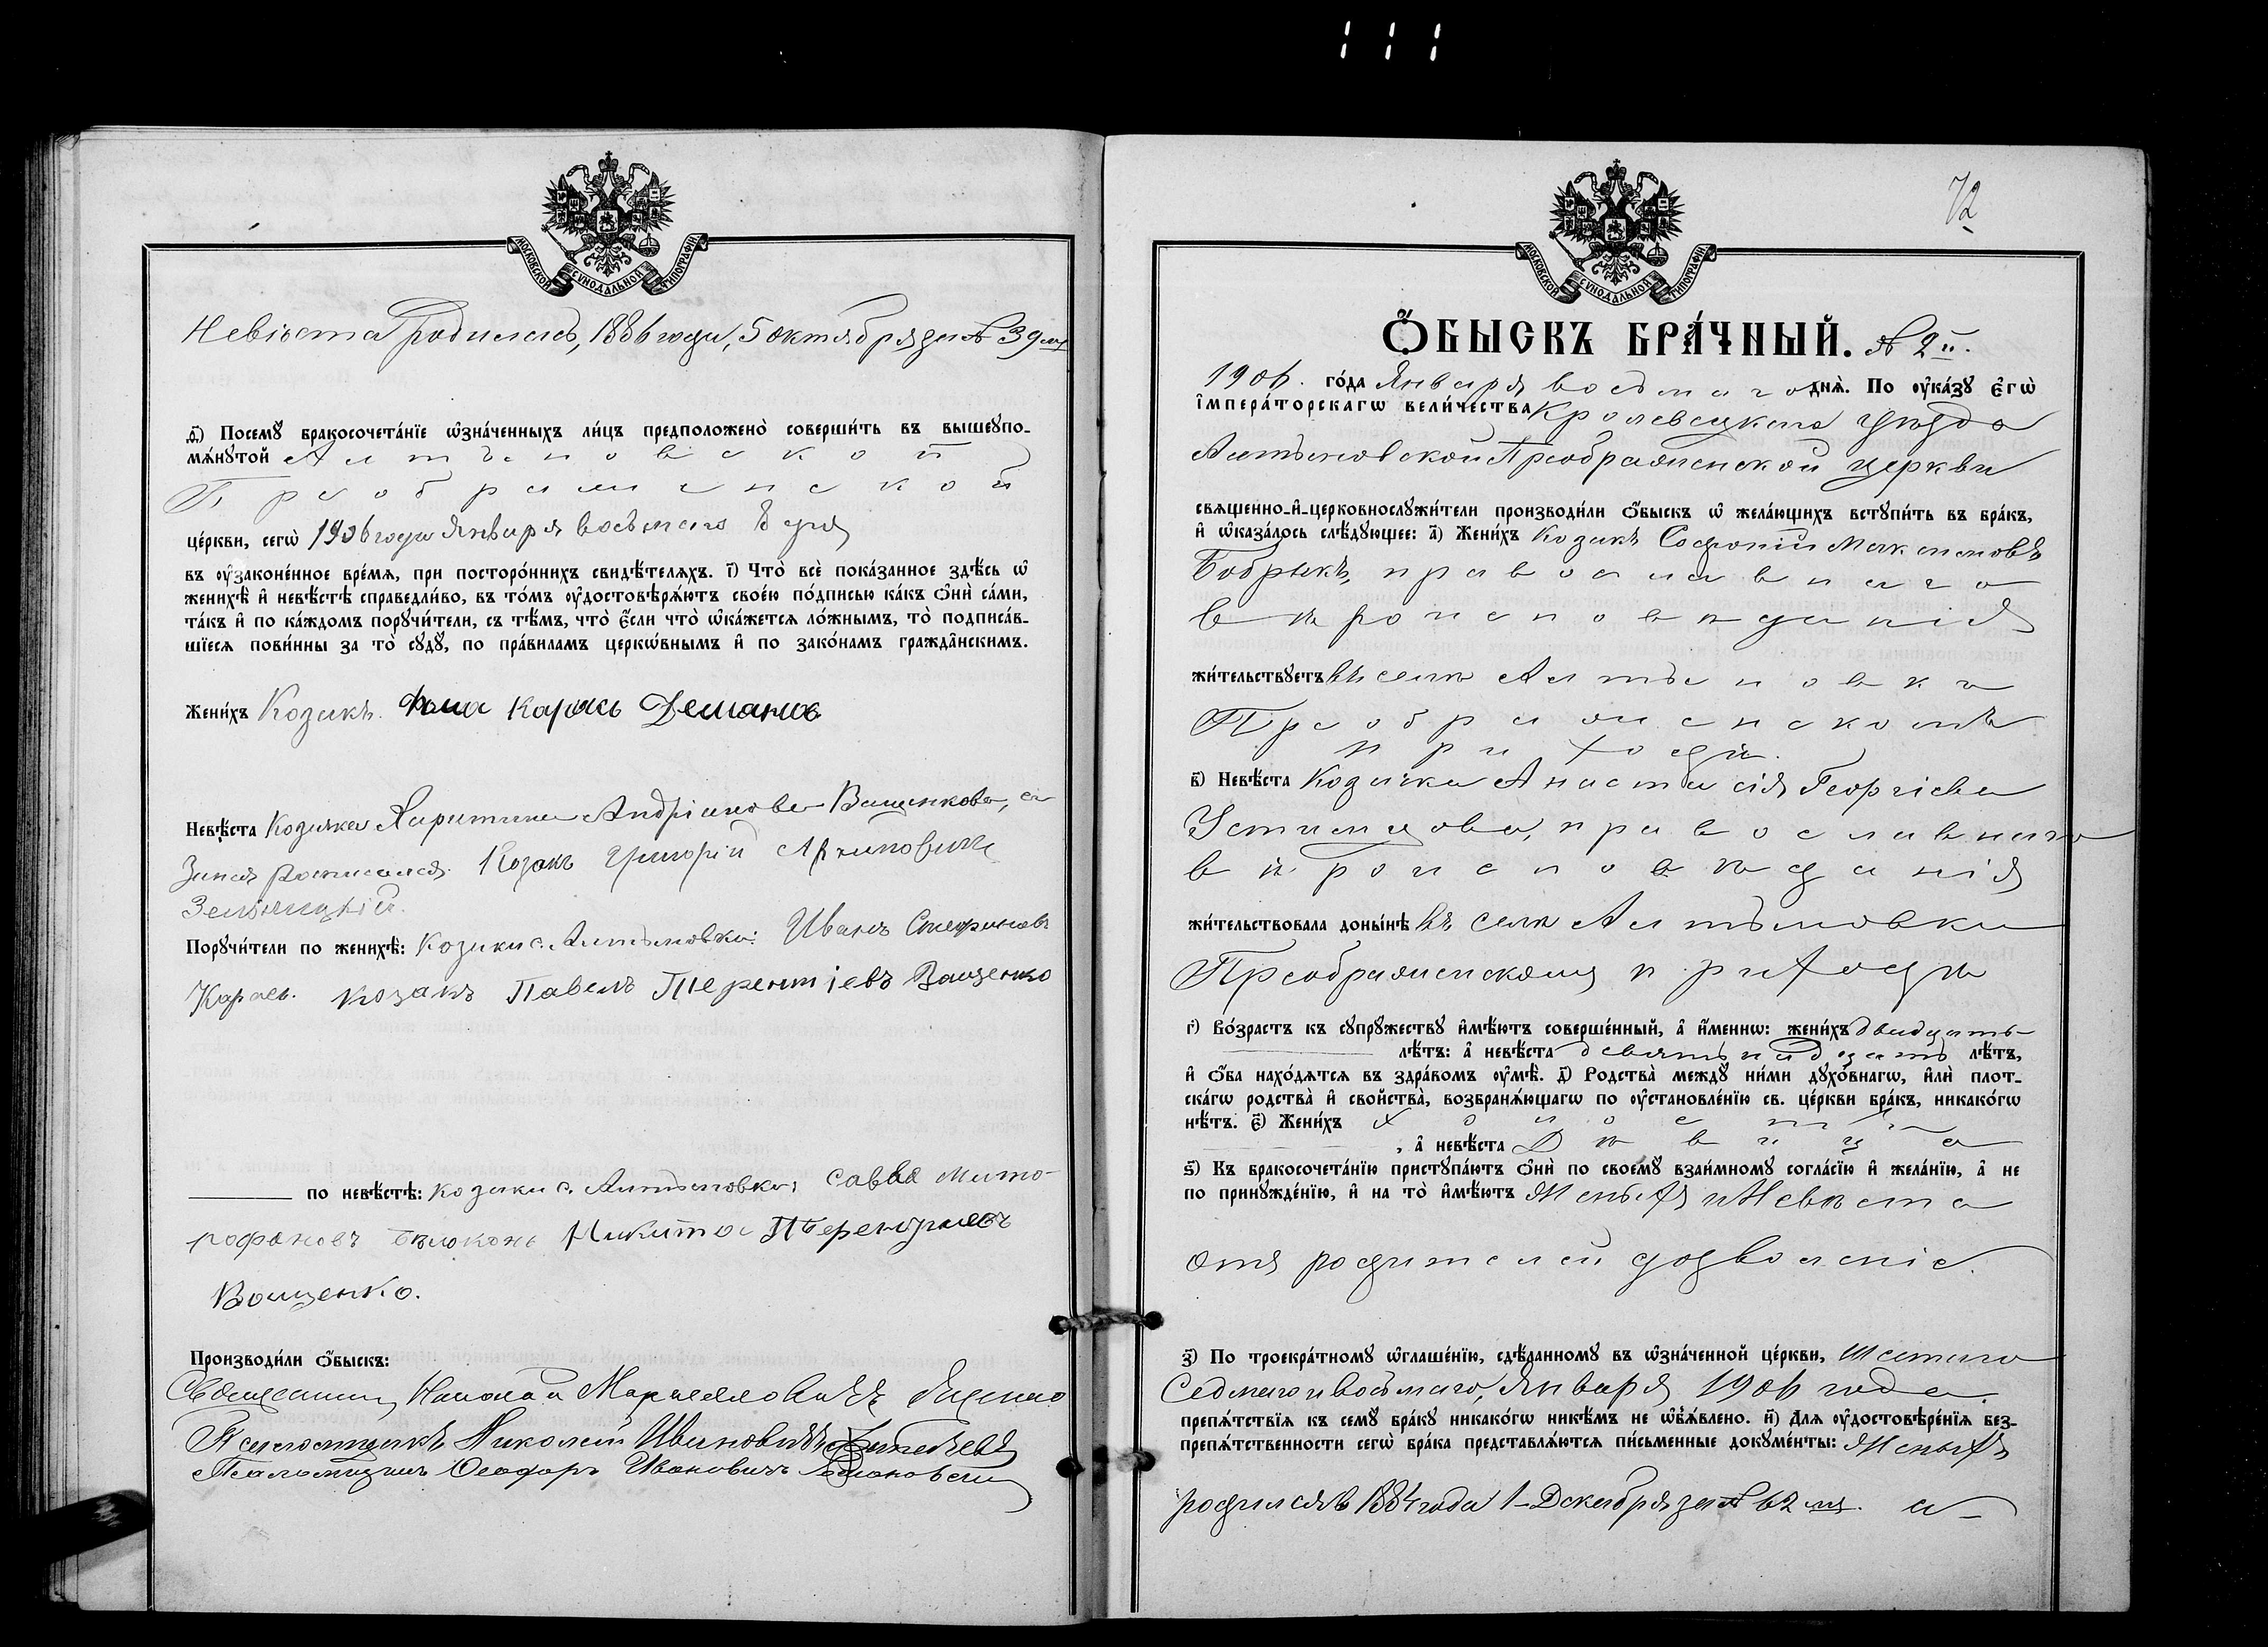 МОСКОВСКОЙ СѴНОДАЛЬНОЙ ТИПОГРАФІИ
Невѣста родилась, 1886 года, 5 октября за № 39 мъ
д҃) Посемꙋ бракосочета́нїе ѡ҆зна́ченныхъ ли́цъ предположено̀ соверши́ть въ вышеꙋпо-
мѧ́нꙋтой Алтыновской
Преображенской
це́ркви, сегѡ̀ 1906 года Января восьмаго 8 дня
въ ᲂу҆зако́ненное вре́мѧ, при посторо́ннихъ свидѣ́телѧхъ. і҃) Что̀ всѐ пока́занное здѣ́сь ѡ҆
женихѣ̀ и҆ невѣ́стѣ справедли́во, въ то́мъ ᲂу҆достовѣрѧ́ютъ свое́ю по́дписью ка́къ ѻ҆нѝ са́ми,
та́къ и҆ по ка́ждомъ порꙋчи́тели, съ тѣ́мъ, что̀ є҆́сли что̀ ѡ҆ка́жетсѧ ло́жнымъ, то̀ подписа́в-
шїесѧ пови́нны за то̀ сꙋдꙋ̀, по пра́виламъ церкѡ́внымъ и҆ по зако́намъ гражда̑нскимъ.
Жени́хъ Козакъ
Невѣ́ста Козачка Харитина Андріанова Ващенкова, а
За нея росписался Козакъ Григорій Архиповичъ
Порꙋчи́тели по женихѣ̀: Козаки с. Алтыновки: Иванъ Стефановъ
Карась. козакъ Павелъ Терентіевъ Ващенко
по невѣ́стѣ: козаки с. Алтыновки: Савва Мито-
рофановъ Бѣлоконь Никита Терентіевъ
Ващенко.
Производи́ли ѻ҆́быскъ:
Священникъ Николай
Псаломщикъ Николай Ивановичъ
Псаломщикъ Ѳеодоръ Ивановичъ
МОСКОВСКОЙ СѴНОДАЛЬНОЙ ТИПОГРАФІИ
72
Ѻ҆́БЫСКЪ БРА́ЧНЫЙ. № 2й.
1906. го́да Января восьмаго днѧ̀. По ᲂу҆ка́зꙋ є҆гѡ̀
і҆мпера́торскагѡ вели́чества Кролевецкаго уѣзда
Алтыновской Преображенской церкви
свѧщенно-и҆-церковнослꙋжи́тели производи́ли ѻ҆́быскъ ѡ҆ жела́ющихъ встꙋпи́ть въ бра́къ,
и҆ ѡ҆каза́лось слѣ́дꙋющее: а҃) Жени́хъ Козакъ Софроній Максимовъ
Бобрыкъ, православнаго
вѣроисповѣданія
жи́тельствꙋетъ въ селѣ Алтыновкѣ
Преображенскомъ
приходѣ.
в҃) Невѣ́ста Козачка Анастасія Георгіева
Устимцова, православнаго
вѣроисповѣданія
жи́тельствовала доны́нѣ въ селѣ Алтыновки
Преображенскому приходѣ
г҃) Во́зрастъ къ сꙋпрꙋ́жествꙋ и҆мѣ́ютъ соверше́нный, а҆ и҆́меннѡ: жени́хъ двадцать
лѣ́тъ: а҆ невѣ́ста девятьнадцать лѣ́тъ,
и҆ ѻ҆́ба нахо́дѧтсѧ въ здра́вомъ ᲂу҆мѣ̀. д҃) Родства̀ междꙋ̀ ни́ми дꙋхо́внагѡ, и҆лѝ плот-
ска́гѡ родства̀ и҆ свойства̀, возбранѧ́ющагѡ по ᲂу҆становле́нїю св. це́ркви бра́къ, никако́гѡ
нѣ́тъ. є҃) Жени́хъ холостъ
, а҆ невѣ́ста Дѣвица
ѕ҃) Къ бракосочета́нїю пристꙋпа́ютъ ѻ҆нѝ по своемꙋ̀ взаи́мномꙋ согла́сїю и҆ жела́нїю, а҆ не
по принꙋжде́нїю, и҆ на то̀ и҆мѣ́ютъ Женихъ и Невѣста
отъ родителей дозволеніе.
з҃) По троекра́тномꙋ ѡ҆глаше́нїю, сдѣ́ланномꙋ въ ѡ҆зна́ченной це́ркви, шестаго
Седмаго и восьмаго, Января 1906 года
препѧ́тствїѧ къ семꙋ̀ бра́кꙋ никако́гѡ никѣ́мъ не ѡ҆б̾ѧ́влено. и҃) Длѧ̀ ᲂу҆достовѣре́нїѧ без-
препѧ́тственности сегѡ̀ бра́ка представлѧ́ютсѧ пи́сьменные докꙋме́нты: Женихъ
родился въ 1884 года 1 Декабря за № 62 мъ. а